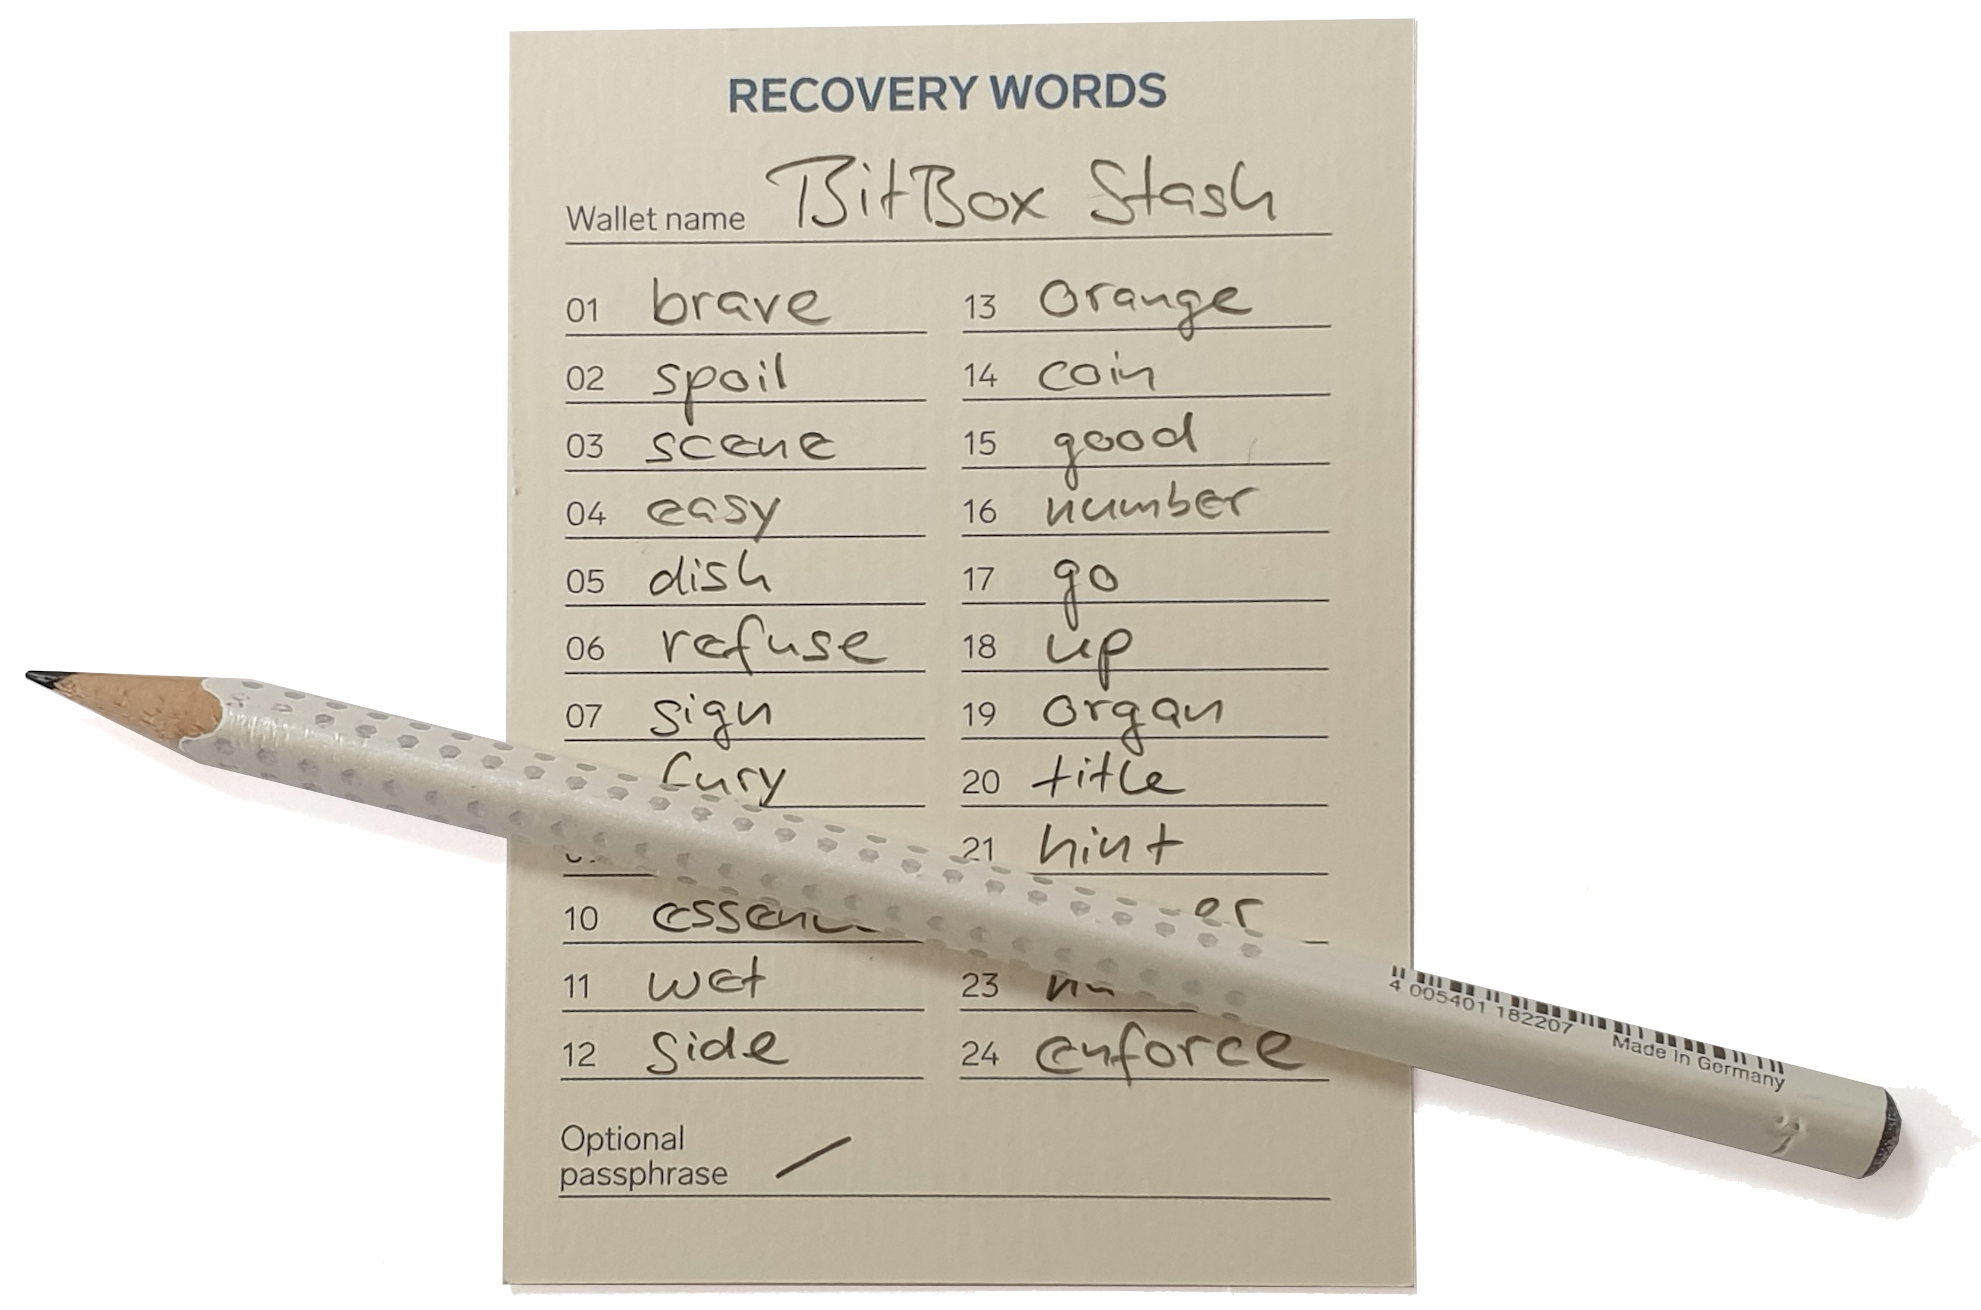 RECOVERY WORDS
Wallet name BitBox Stash
01 brave
02 spoil
03 scene
04 easy
05 dish
06 refuse
07 sign
fury
10
11 wet
12 side
13 orange
14 coin
15 good
16 number
17 go
18 up
19 organ
20 title
21 hint
23
24 enforce
Optional
passphrase
4 005401 182207
Made in Germany